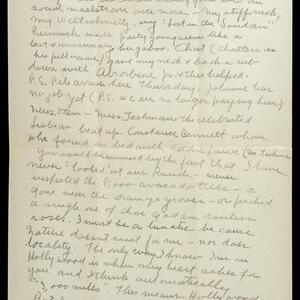 social maelstrom once more – my stiff neck,
my Weltschmertz, my "fist in the
heimish made party youngsters like a
last & unnecessary bugaboo. Chat (Chatters is
his full name) gave my neck & back a rub-
down with Absorbene Jr & this helped.
P.S. Pete arrives here Thursday, Johnnie has
no job yet (P.S. we are no longer paying her)
News Item – Miss Tashman the celebrated
lesbian beat up Constance Bennett whom
she found in bed with Eddie Lowe (Mr. Tashman
You would be amused by the fact that I have
never "looked" at our Ranch – never
inspected the 8,000 avocado trees – or
gone near the orange groves – or picked
a single one of those G'ddam
roses. I must be a lunatic because
nature doesn't exist for me – nor does
locality. The only way I know I'm in
Hollywood is when my heart aches for
you and I think automatically
"3,000 miles". This means Hollywood